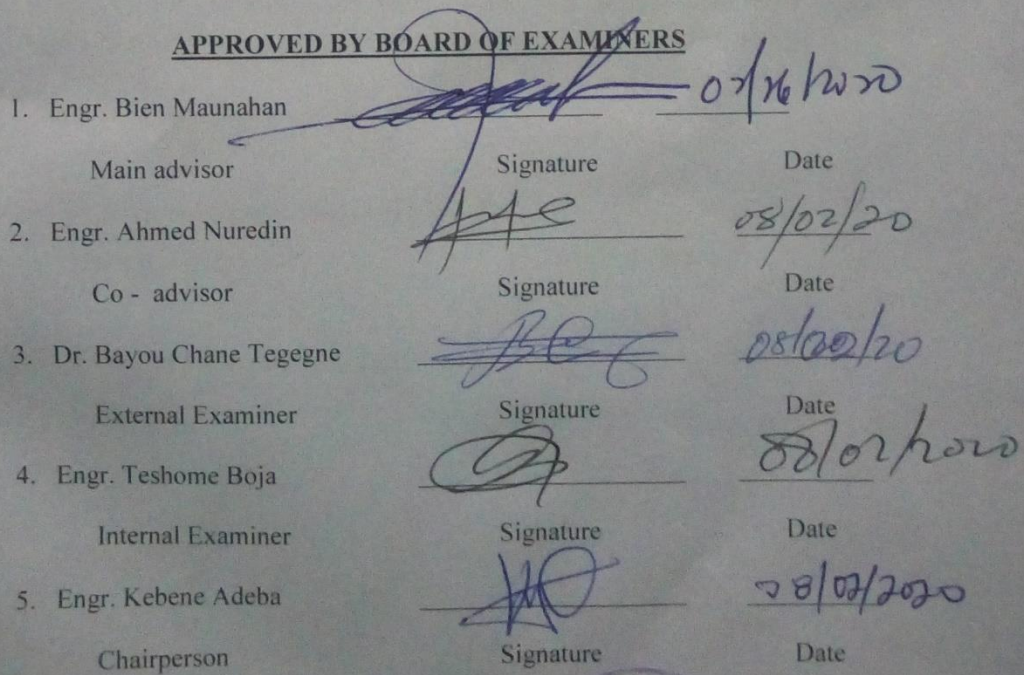 APPROVED BY BOARD OF EXAMINERS
1. Engr. Bien Maunahan
Main advisor Signature Date
2. Engr. Ahmed Nuredin 08/02/20
Co - advisor Signature Date
3. Dr. Bayou Chane Tegegne
External Examiner Signature Date
4. Engr. Teshome Boja 08/02/2020
Internal Examiner Signature Date
5. Engr. Kebene Adeba 08/02/2020
Chairperson Signature Date